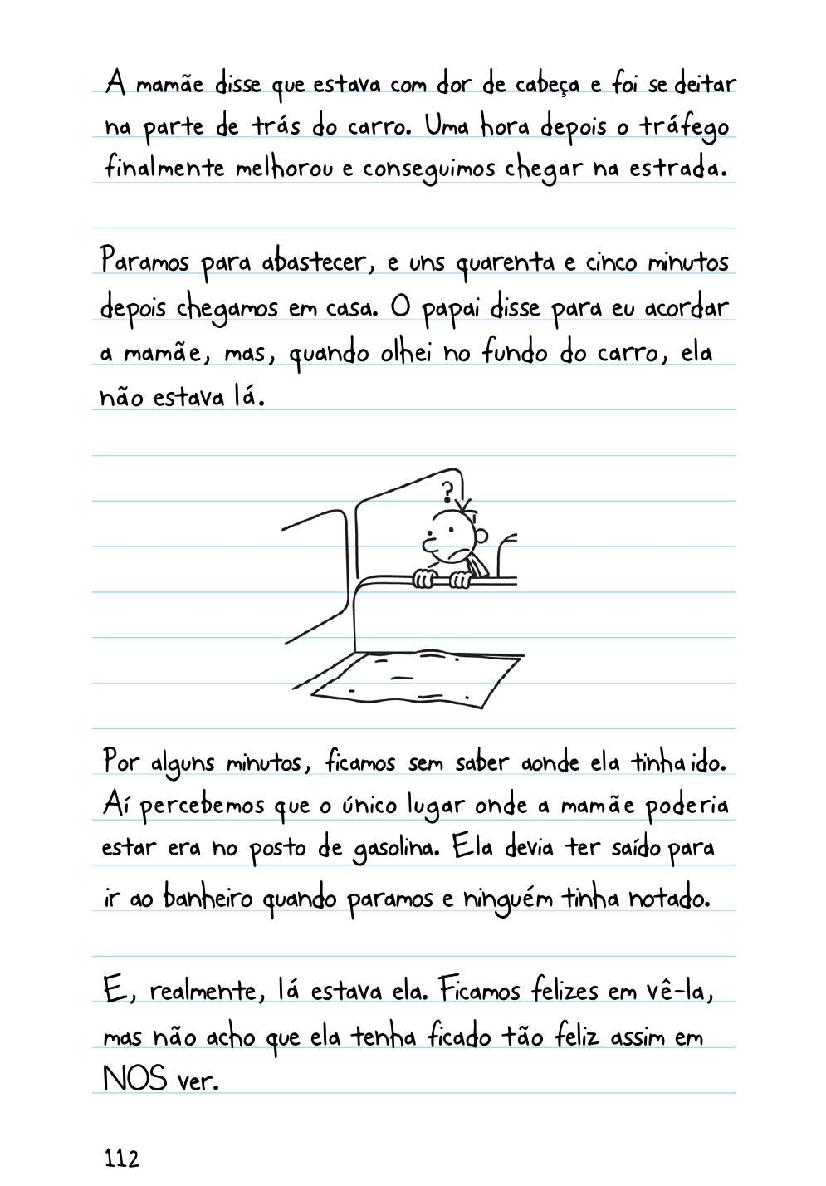 A mamãe disse que estava com dor de cabeça e foi se deitar
na parte de trás do carro. Uma hora depois o tráfego
finalmente melhorou e conseguimos chegar na estrada.
Paramos para abastecer, e uns quarenta e cinco minutos
depois chegamos em casa. O papai disse para eu acordar
a mamãe, mas, quando olhei no fundo do carro, ela
não estava lá.
?
Por alguns minutos, ficamos sem saber aonde ela tinha ido.
Aí percebemos que o único lugar onde a mamãe poderia
estar era no posto de gasolina. Ela devia ter saído para
ir ao banheiro quando paramos e ninguém tinha notado.
E, realmente, lá estava ela. Ficamos felizes em vê-la,
mas não acho que ela tenha ficado tão feliz assim em
NOS ver.
112